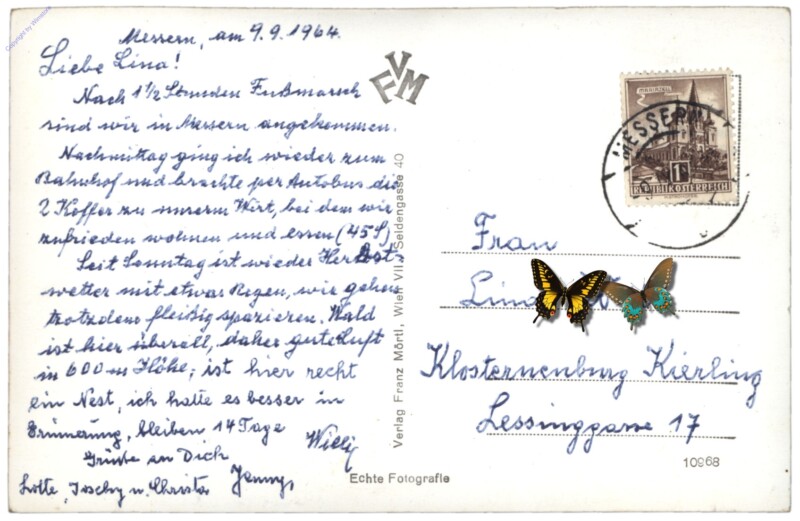 Copyright by Wandazia
Messern, am 9.9.1964.
Liebe Lina!
Nach 1 1/2 Stunden Fußmarsch
sind wir in Messern angekommen.
Nachmittag ging ich wieder zum
Bahnhof und brachte per Autobus die
2 Koffer zu unserm Wirt, bei dem wir
zufrieden wohnen und essen (45 S).
Seit Sonntag ist wieder Herbst-
wetter mit etwas Regen, wir gehen
trotzdem fleißig spazieren. Wald
ist hier überall, daher gute Luft
in 600 m Höhe; ist hier recht
ein Nest, ich hatte es besser in
Erinnerung, bleiben 14 Tage
Grüße an Dich
Willi
Lotte, Joschy u. Christa Jenny
FVM
Verlag Franz Mörtl, Wien VII., Seidengasse 40
Echte Fotografie
MARIAZELL
1S
REPUBLIK ÖSTERREICH
MESSERN
Frau
Lina W
Klosterneuburg Kierling
Lessinggasse 17
10968